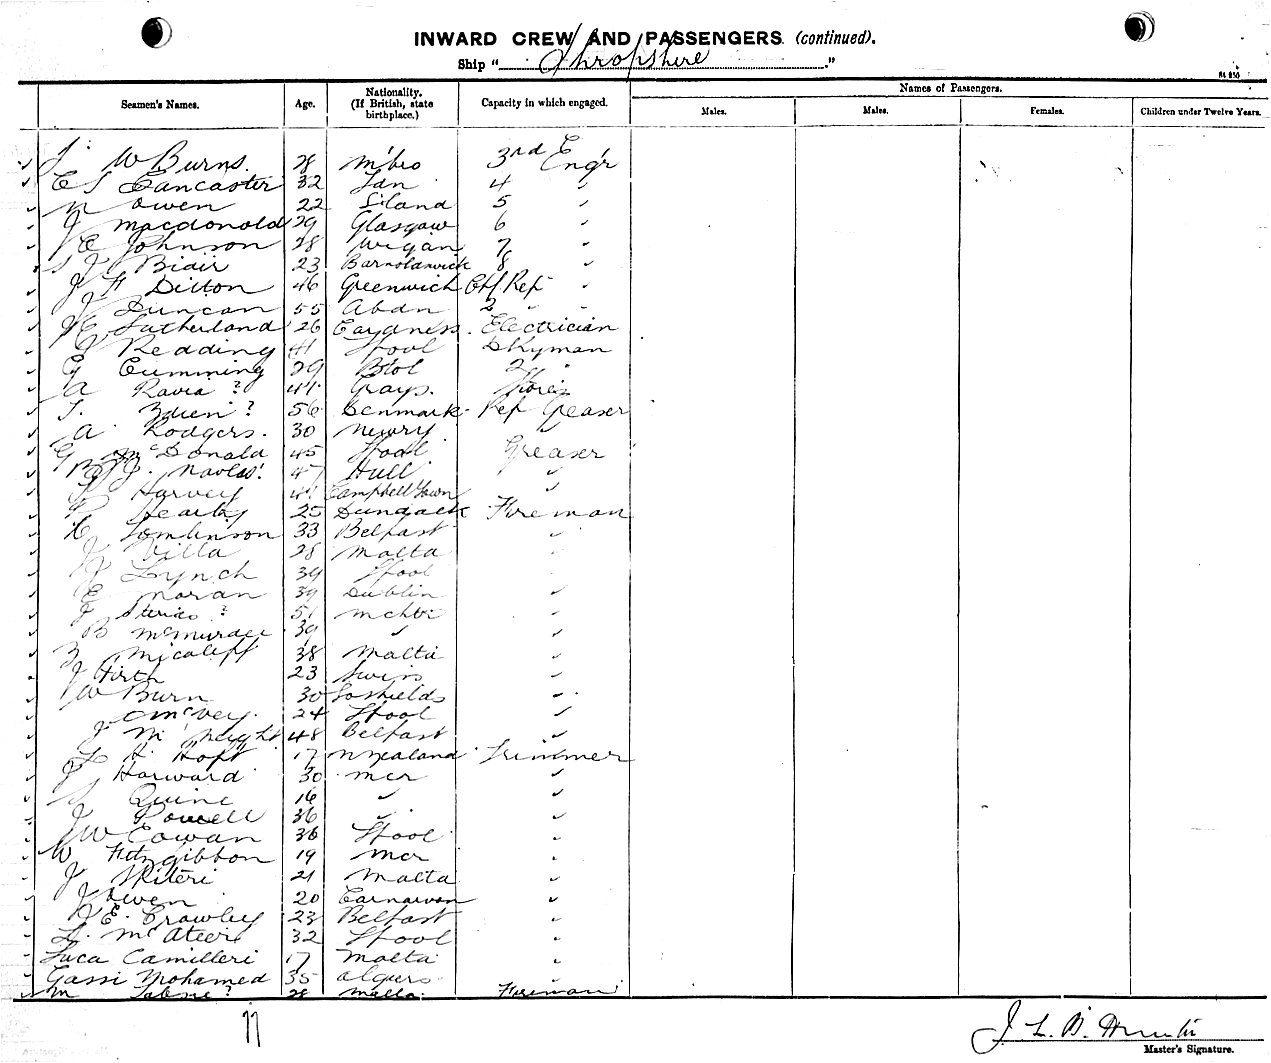 INWARD CREW AND PASSENGERS (continued).
Ship "Shropshire."
Names of Passengers.
Seamen's Names. Age. Nationality. (If British, state birthplace.) Capacity in which engaged. Males. Males. Females. Children under Twelve Years.
J. W Burns. 28 M'bro 3rd Engr
C S Lancaster 32 Ldn 4 "
N Owen 22 S'land 5 "
J Macdonald 29 Glasgow 6 "
J E Johnson 28 Wigan 7 "
S J Blair 23 Barnoldswick 8 "
J H Ditton 46 Greenwich Chf Ref
J Duncan 55 Abdn 2 " "
Sutherland 26 Electrician
J Redding 41 L'pool Dkyman
G Cumming 29 B'tol 2 "
A Ravia ? 44 Grays.
J. ? 56 Denmark Ref Greaser
A Rodgers. 30 Newry "
G McDonald 45 L'pool Greaser
47 Hull "
J Harvey 41 Campbell Town "
P 25 Dundalk Fireman
C Tomlinson 33 Belfast "
J Villa 28 Malta "
J Lynch 39 L'pool "
E Moran 39 Dublin "
J ? 51 "
B 39 " "
Z Micaleff 38 Malta "
J Firth 23 "
J W Burn 30 So Shields "
C McVey. 24 L'pool "
J 48 Belfast "
L H Hoft 17 N Zealand Trimmer
J Harward 30 Mcr "
S Quine 16 " "
J Powell 36 " "
J W Cowan 36 L'pool "
W Fitzgibbon 19 Mcr "
J Spiteri 21 Malta "
J Owen 20 Carnarvon "
J E. Crawley 23 Belfast "
D. McAteer 32 L'pool "
Luca Camilleri 17 Malta "
Gassi Mohamed 35 Algiers "
M ? 28 Malta. Fireman
J. L. B. Hunter
Master's Signature.